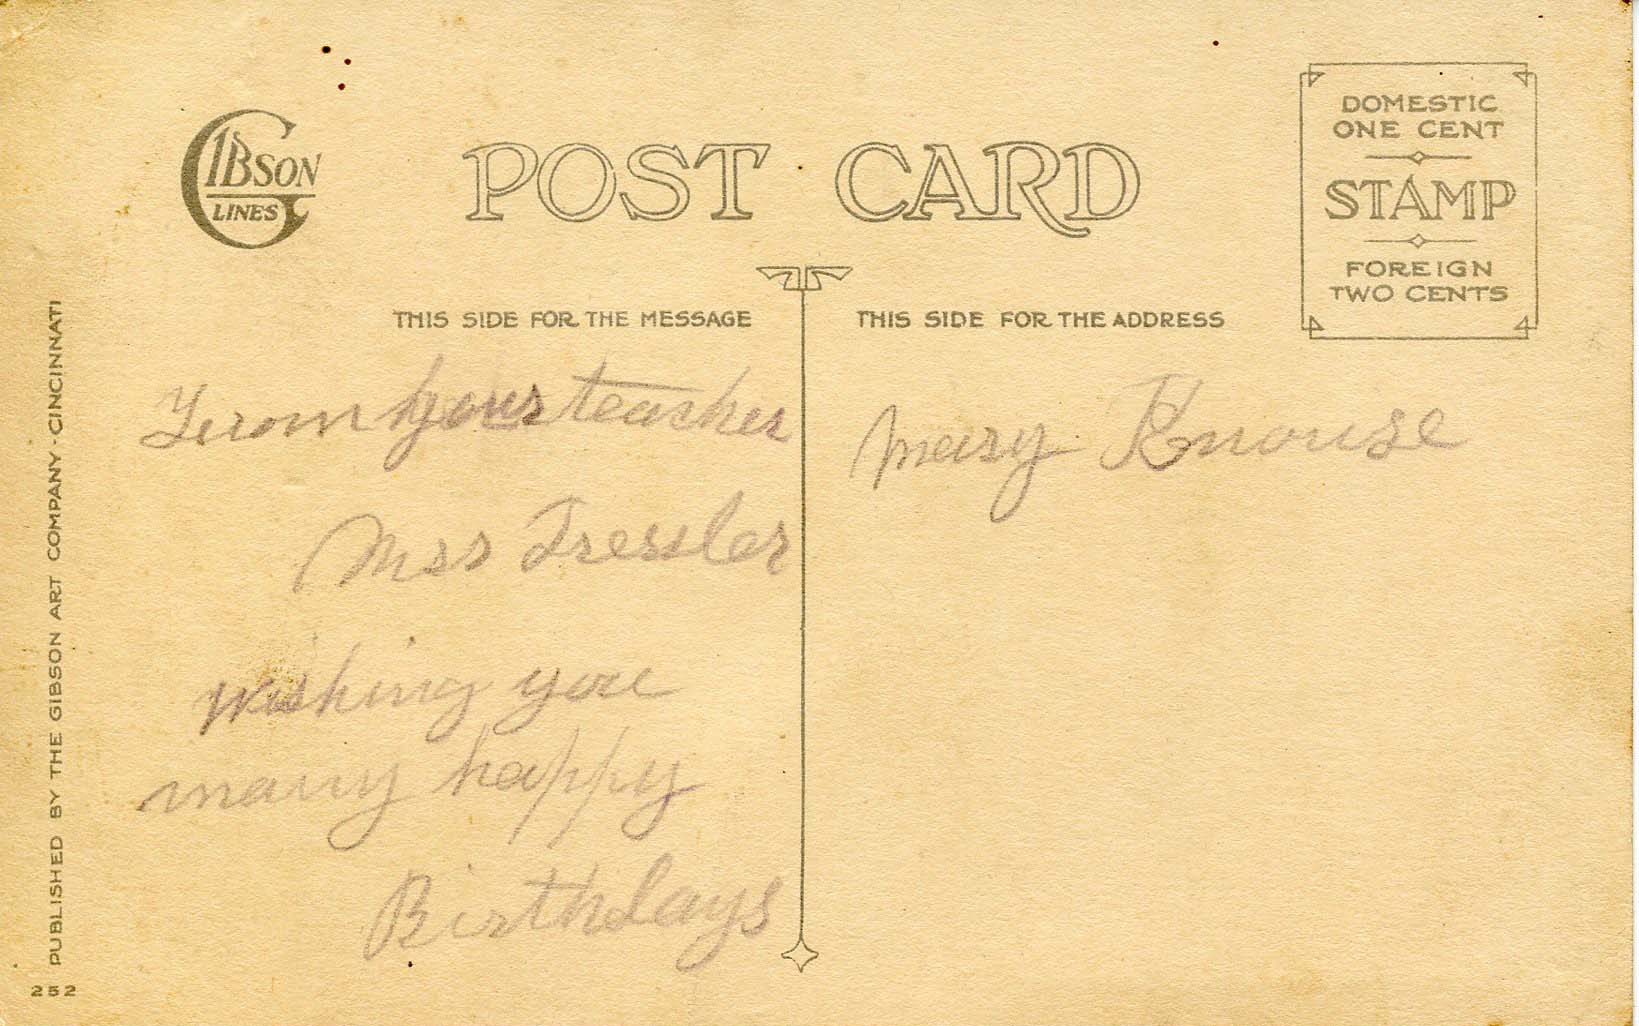 GIBSON
LINES
POST CARD
DOMESTIC
ONE CENT
STAMP
FOREIGN
TWO CENTS
THIS SIDE FOR THE MESSAGE
THIS SIDE FOR THE ADDRESS
From your teacher
Mrs Tressler
wishing you
many happy
Birthdays
Mary Knouse
PUBLISHED BY THE GIBSON ART COMPANY · CINCINNATI
252